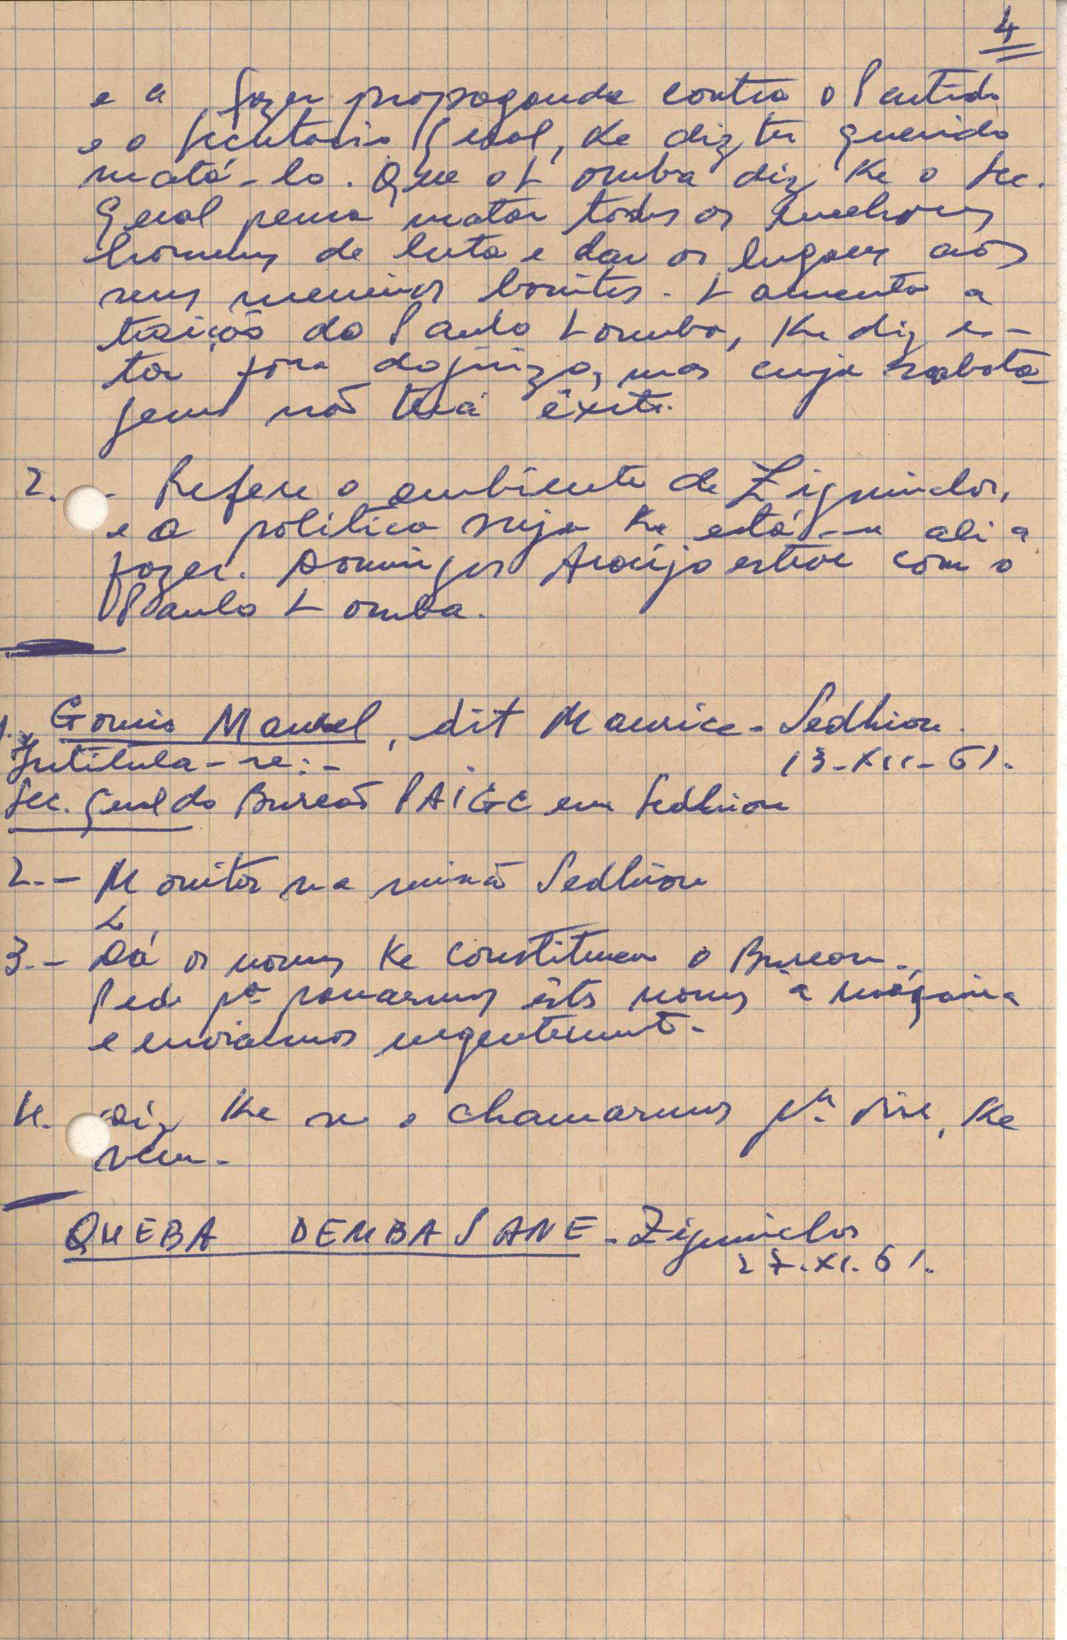 4
e a fazer propaganda contra o Partido
e o Secretario Geral, ke diz ter querido
matá-lo. Que o Lomba diz ke o Sec.
Geral pensa matar todos os melhores
homens de luta e dar os lugares aos
seus meninos bonitos. Lamenta a
traição do Paulo Lomba, ke diz es-
tar fora do juizo, mas cuja sabota-
gem não terá êxito.
2. - Refere o ambiente de Ziguinchor,
e a politica suja ke está-se ali a
fazer. Domingos Araújo esteve com o
Paulo Lomba.
1. Gomis Manuel, dit Maurice - Sedhiou
Intitula-se:- 13-XII-61.
Sec. Geral do Bureaó PAIGC em Sedhiou
2.- Monitor na missão Sedhiou
3.- Dá os nomes ke constituem o Bureau.
Pede pa passarmos êsts nomes à máquina
e enviarmos urgentemente.
4. Diz ke se o chamarmos pa , ke
vem.
QUEBA DEMBA SANE - Ziguinchor
27.XI.61.